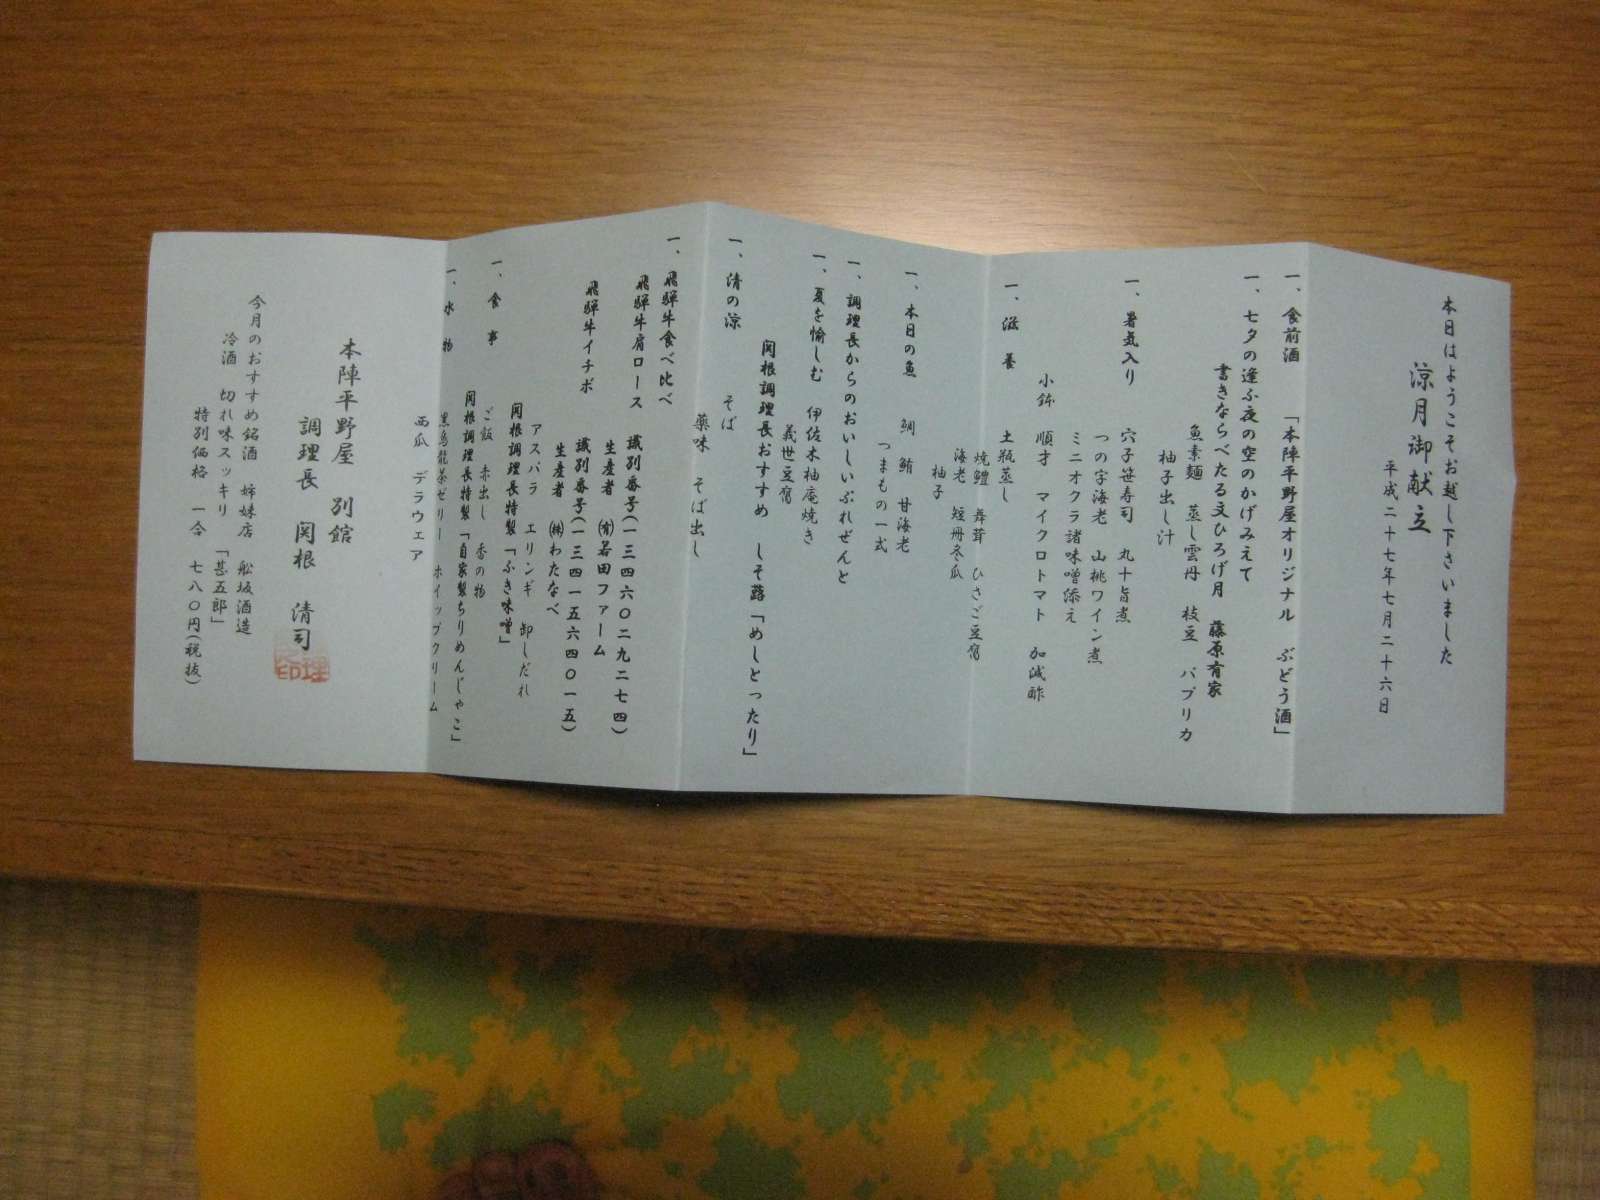 本日はようこそお越し下さいました
涼月御献立
平成二十七年七月二十六日
一、食前酒　「本陣平野屋オリジナル　ぶどう酒」
一、七夕の逢ふ夜の空のかげみえて
書きならべたる文ひろげ月　藤原有家
魚素麺　蒸し雲丹　枝豆　パプリカ
柚子出し汁
一、暑気入り　穴子笹寿司　丸十旨煮
つの字海老　山桃ワイン煮
ミニオクラ諸味噌添え
小鉢　順才　マイクロトマト　加減酢
一、滋養　土瓶蒸し
焼鱧　舞茸　ひさご豆腐
海老　短冊冬瓜
柚子
一、本日の魚　鯛　鮪　甘海老
つまもの一式
一、調理長からのおいしいぷれぜんと
一、夏を愉しむ　伊佐木柚庵焼き
義世豆腐
関根調理長おすすめ　しそ蕗「めしとったり」
一、清の涼　そば
薬味　そば出し
一、飛騨牛食べ比べ
飛騨牛肩ロース　識別番号(一三四六〇二九二七四)
生産者　㈲若田ファーム
飛騨牛イチボ　識別番号(一三四一五六四〇一五)
生産者　㈱わたなべ
アスパラ　エリンギ　卸しだれ
関根調理長特製「ふき味噌」
一、食事　ご飯　赤出し　香の物
関根調理長特製「自家製ちりめんじゃこ」
一、水物　黒烏龍茶ゼリー　ホイップクリーム
西瓜　デラウェア
本陣平野屋　別館
調理長　関根　清司
今月のおすすめ銘酒　姉妹店　舩坂酒造
冷酒　切れ味スッキリ　「甚五郎」
特別価格　一合　七八〇円(税抜)